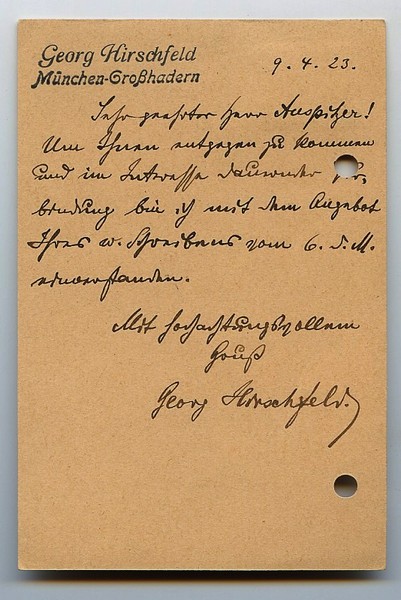 Georg Hirschfeld
München-Großhadern
9. 4. 23.
Sehr geehrter Herr Auspitzer!
Um Ihnen entgegen zu kommen
und im Interesse dauernder Ver-
bindung bin ich mit dem Angebot
Ihres w. Schreibens vom 6. d. M.
einverstanden.
Mit hochachtungsvollem
Gruß
Georg Hirschfeld.